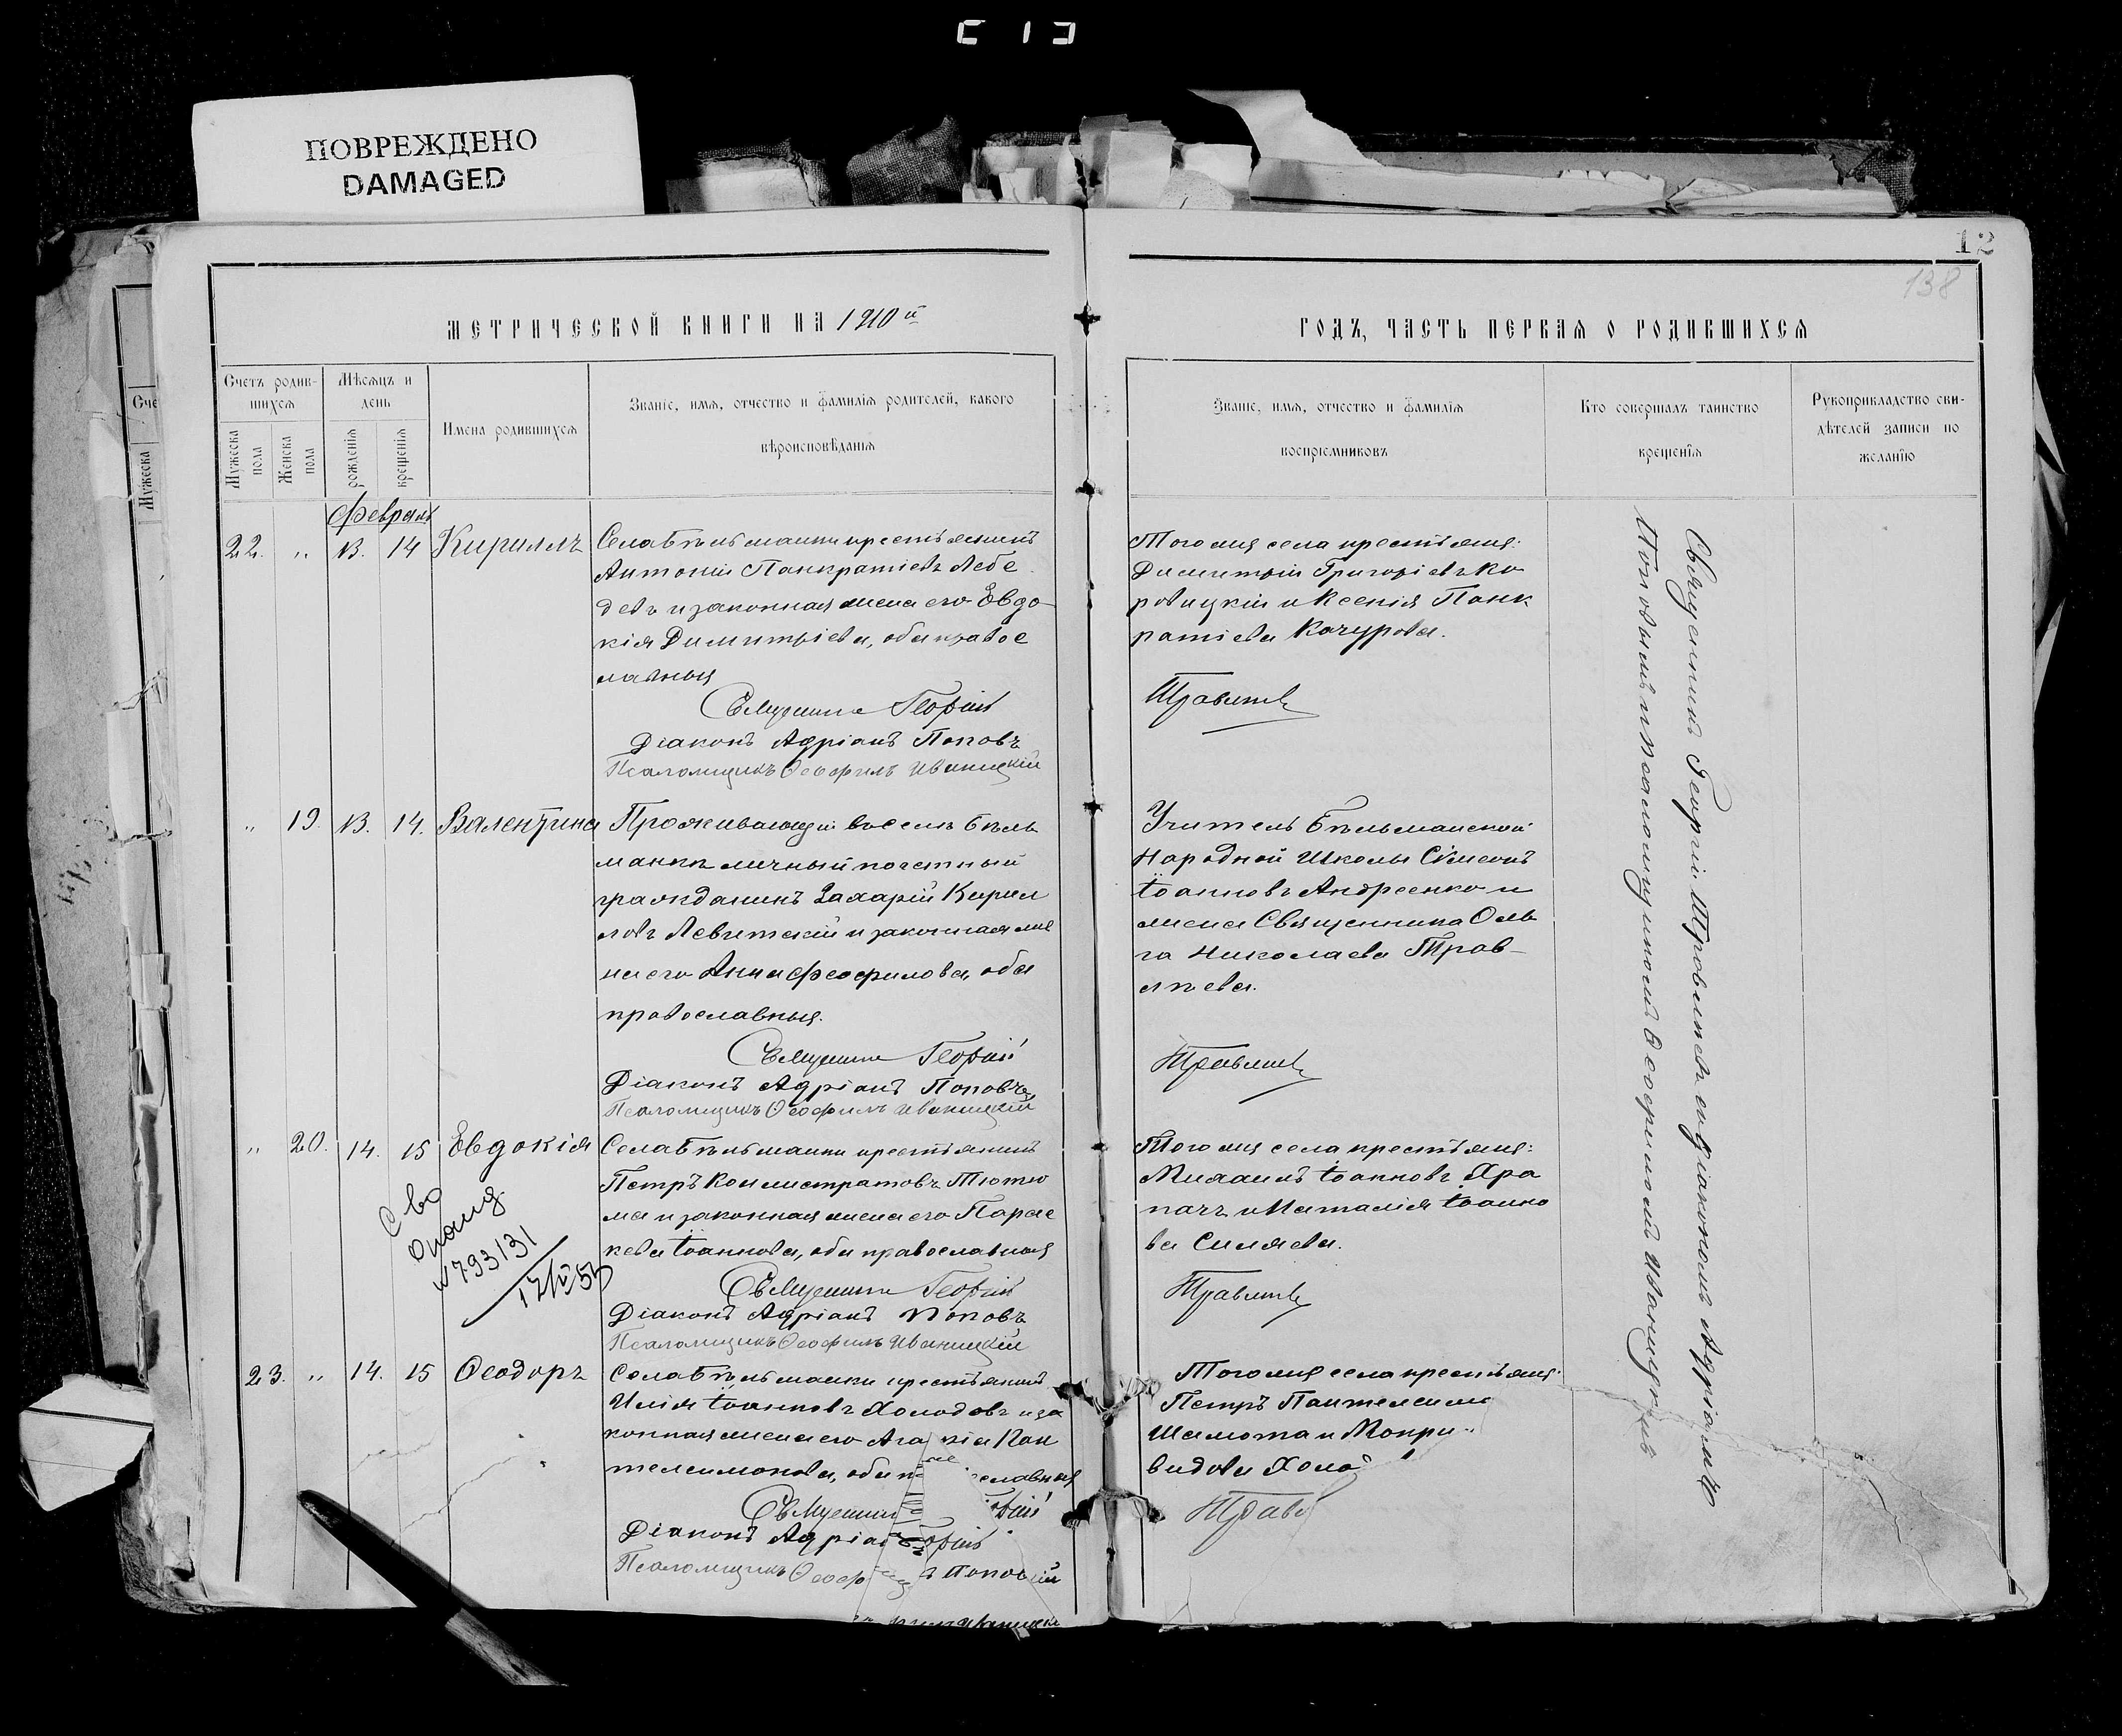 ПОВРЕЖДЕНО
DAMAGED
12
138
МЕТРИЧЕСКОЙ КНИГИ НА 1910 й
ГОДЪ, ЧАСТЬ ПЕРВАЯ О РОДИВШИХСЯ
Счетъ родив-
шихся
Мужеска пола
Женска пола
Мѣсяцъ и
день
рожденія
крещенія
Имена родившихся
Званіе, имя, отчество и фамилія родителей, какого
вѣроисповѣданія
Званіе, имя, отчество и фамилія
воспріемниковъ
Кто совершалъ таинство
крещенія
Рукоприкладство сви-
дѣтелей записи по
желанію
Февраль
22. „ 13. 14 Кириллъ
Села Бѣльманки крестьянинъ
Антоній Панкратіевъ Лебе
девъ и законная жена его Евдо-
кія Димитріева, оба правос
лавныя
Священникъ Георгій
Діаконъ Адріанъ Поповъ
Псаломщикъ Ѳеофилъ Иваницкій
Того же села крестьяне:
Димитрій Григоріевъ Ко
ровицкій и Ксенія Панк
ратіева Качурова.
Травлѣевъ
„ 19. 13. 14. Валентина
Проживающій въ селѣ Бѣль
манкѣ личный почетный
гражданинъ Захарій Кирил
ловъ Левитскій и законная же
на его Анна Феофилова, оба
православныя.
Священникъ Георгій
Діаконъ Адріанъ Поповъ
Псаломщикъ Ѳеофилъ Иваницкій
Учитель Бѣльманской
Народной Школы Сѵмеонъ
Іоанновъ Андреенко и
жена Священника Оль
га Николаева Трав-
лѣева.
Травлѣевъ
„ 20. 14. 15 Евдокія
Села Бѣльманки крестьянинъ
Петръ Каллистратовъ Тютю
ма и законная жена его Парас
кева Іоаннова, оба православныя
Священникъ Георгій
Діаконъ Адріанъ Поповъ
Псаломщикъ Ѳеофилъ Иваницкій
Того же села крестьяне:
Михаилъ Іоанновъ Хра
пачъ и Наталія Іоанно
ва Силяева.
Травлѣевъ
С во
№ 793131
23. „ 14. 15 Ѳеодоръ
Села Бѣльманки крестьянинъ
Илія Іоанновъ Холодовъ и за
конная жена его
телеимонова, оба славныя
Священни
Діаконъ Адріа
Псаломщикъ Ѳеоф
Поповъ
Того же села крестьяне:
Петръ Пантелеимо
Шамота и Мокри
видова Холо
Травл
Священникъ Георгій Травлѣевъ съ діакономъ Адріаномъ
Поповымъ и псаломщикомъ Ѳеофиломъ Иваницкимъ